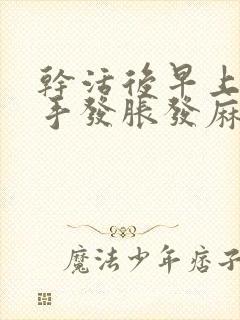 幹活後早上
手發脹發麻
魔法少年痞子